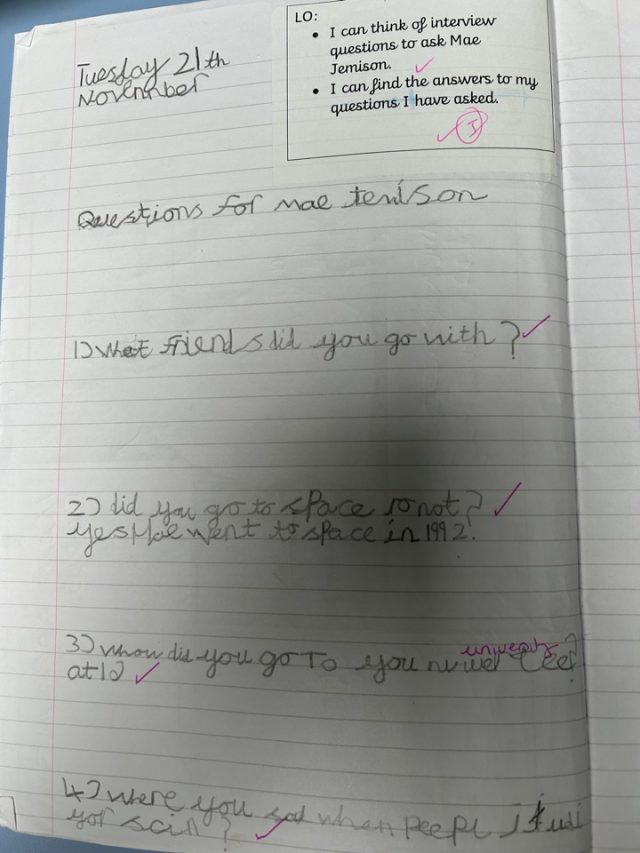 LO:
• I can think of interview
questions to ask Mae
Jemison.
• I can find the answers to my
questions I have asked.
I
Tuesday 21th
November
Questions for mae Jenison
1) What friends did you go with?
2) did you go to space ro not?
yes Mae went to space in 1992.
3) whow did you go To you nuwer Tee?
university
at 1
4) where you sad when peepl
yor scin?